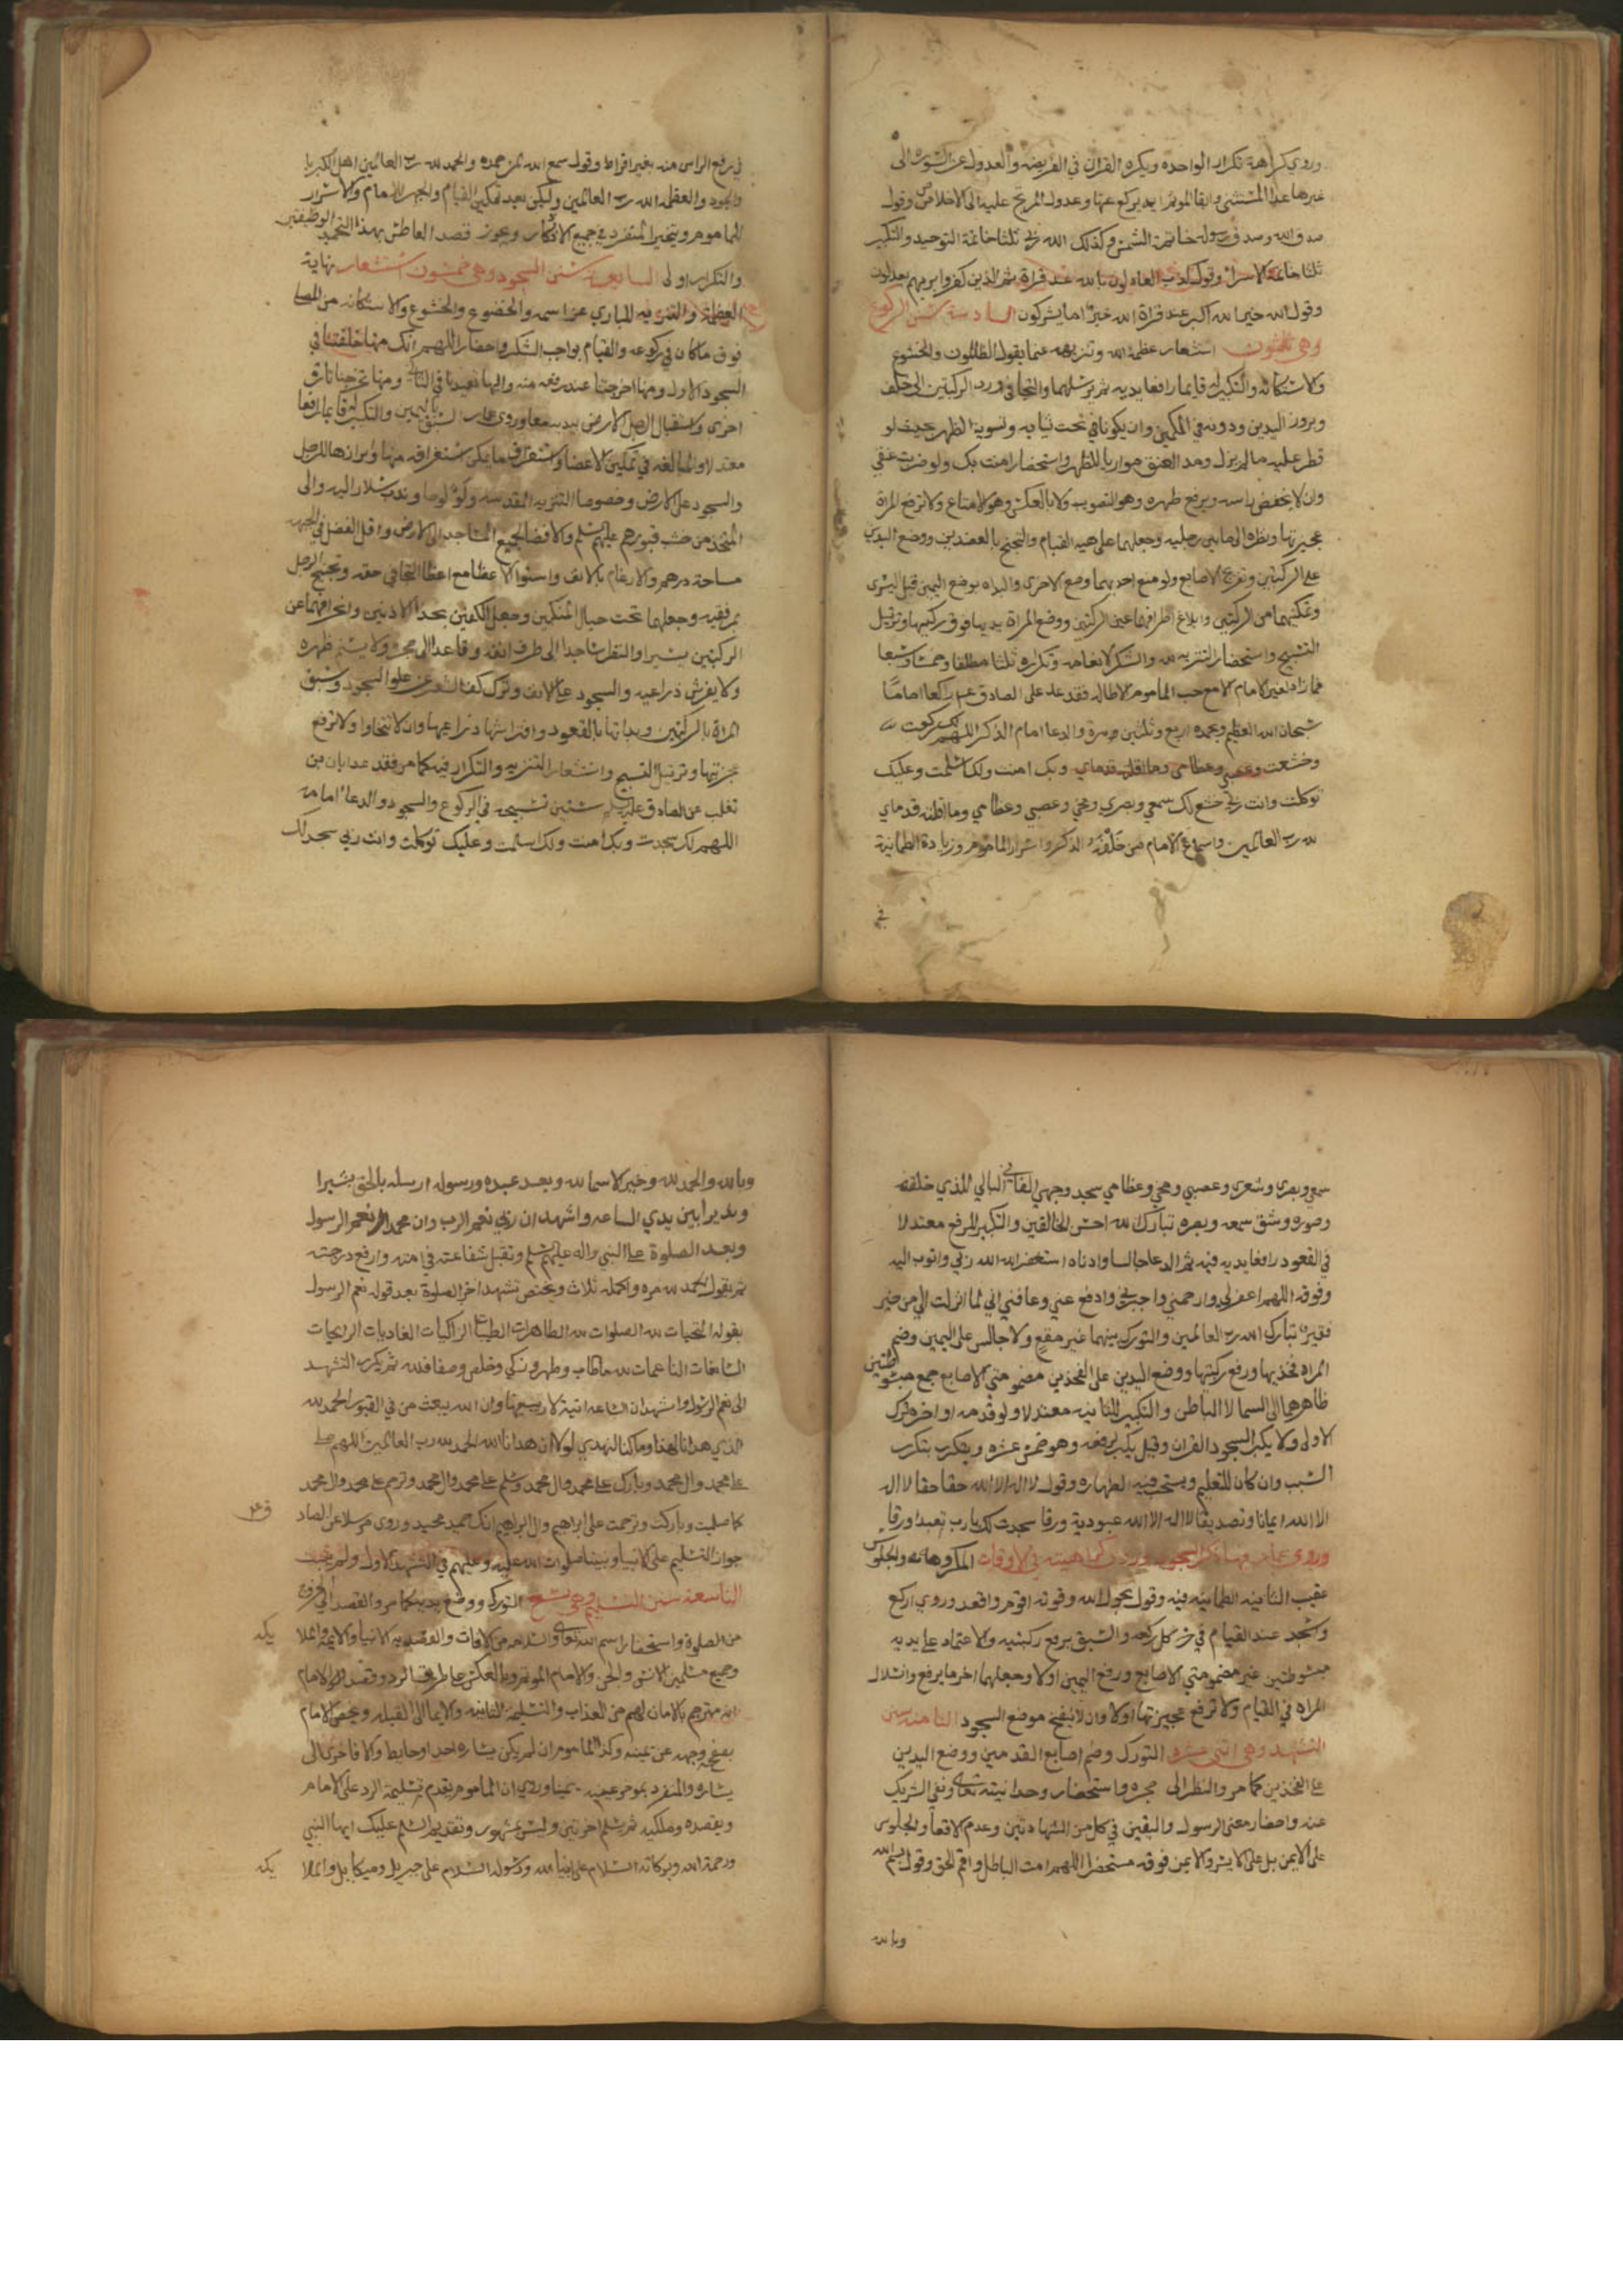 وروي كراهة تكرار الواحده ويكره القران في الفريضه والعدول عن السوره الى
غيرها عدا المستثنى وابقا الموتم اية يركع عنها وعدول المرتج عليه الى الاخلاص وقول
صدق الله وصدق رسوله خاتمة الشمس وكذلك الله ربي ثلثا خاتمة التوحيد والتكبير
ثلثا خاتمة الاسرا وقول كذب العادلون بالله عند قراة ثم الذين كفروا بربهم يعدلون
وقول الله خير الله اكبر عند قراة الله خير اما يشركون السادسة سنن الركوع
وهي ثلثون استشعار عظمة الله وتنزيهه عما يقول الظالمون والخشوع
والاستكانه والتكبير له قايما رافعا يديه ثم يرسلهما والتجافي ورد الركبتين الى خلف
وبروز اليدين ودونه في الكمين وان يكونا في تحت ثيابه وتسوية الظهر بحيث لو
قطر عليه ما لم يزل ومد العنق موازيا للظهر واستحضار امنت بك ولو ضربت عنقي
وان لا يخفض راسه ويرفع ظهره وهو التصويب ولا بالعكس وهو الاقناع ولا ترفع المراة
عجيزتها ونظره الى ما بين رجليه وجعلهما على هيه القيام والتجنح بالعضدين ووضع اليدين
على الركبتين وتفريج الاصابع ولو منع احديهما وضع الاخرى والبداه بوضع اليمين قبل اليسرى
وتمكينهما من الركبتين وابلاغ اطرافهما عين الركبتين ووضع المراة يديها فوق ركبتيها وترتيل
التسبيح واستحضار التنزيه لله والشكر لانعامه وتكراره ثلثا مطلقا وخمسا وسبعا
فما زاد لغير الامام الا مع حب الماموم الاطاله فقد عد على الصادق راكعا اماما
سبحان الله العظيم وبحمده اربع وثلثين مرة والدعا امام الذكر اللهم لك ركعت
وخشعت وبك امنت ولك اسلمت وعليك
توكلت وانت ربي خشع لك سمعي وبصري ومخي وعصبي وعظامي وما اقلته قدماي
لله رب العالمين واسماع الامام من خلفه الذكر واسرار الماموم وزيادة الطمانينة
في
في رفع الراس منه بغير افراط وقول سمع الله لمن حمده والحمد لله رب العالمين اهل الكبريا
والجود والعظمه الله رب العالمين وليكن بعد تمكين القيام والجهر للامام والاسرار
للماموم ويتخير المنفرد في جميع الاذكار ويجوز قصد العاطس بهذا التحميد الوظيفتين
والتكرار اولى السابعة سنن السجود وهي خمسون استشعار نهاية
العظمة والتنزيه للباري عز اسمه والخضوع والخشوع والاستكانه من المصلي
فوق ما كان في ركوعه والقيام بواجب الشكر واحضار اللهم انك منها خلقتنا في
السجود الاول ومنها اخرجتنا عند رفعه منه واليها تعيدنا في الثاني ومنها تخرجنا تارة
اخرى واستقبال الرجل الارض بيديه معا وروي السبق باليمين والتكبير له قايما رافعا
معتدلا والمبالغه في تمكين الاعضا واستغراق ما يمكن استغراقه منها وابرازها للرجل
والسجود على الارض وخصوصا التربه المقدسه ولو لوحا وندب سلار اليه والى
المتخذ من خشب قبورهم عليهم السلم والافضا بجميع المساجد الى الارض واقل الفضل في الجبهه
مساحة درهم والارغام بالانف واستوا الاعضا مع اعطا التجافي حقه وتجنح الرجل
بمرفقيه وجعلهما تحت حيال المنكبين وجعل الكفين بحذا الاذنين وانحرافهما عن
الركبتين يسيرا والنظر ساجدا الى طرف انفه وقاعدا الى حجره ولا يسنم ظهره
ولا يفرش ذراعيه والسجود على الانف وترك كف الشعر عن السجود وسبق
المراة بالركبتين وبداتها بالقعود وافتراشها ذراعيها وان لا تتخاوا ولا ترفع
عجزتها وترتيل التسبيح واستشعار التنزيه والتكرار فيه كما مر فقد عد ابان بن
تغلب عن الصادق عليه السلم ستين تسبيحه في الركوع والسجود والدعا امامه
اللهم لك سجدت وبك امنت ولك اسلمت وعليك توكلت وانت ربي سجد لك
سمعي وبصري وشعري وعصبي ومخي وعظامي سجد وجهي الفاني البالي للذي خلقه
وصوره وشق سمعه وبصره تبارك الله احسن الخالقين والتكبير للرفع معتدلا
في القعود رافعا يديه فيه ثم الدعا جالسا وادناه استغفر الله الله ربي واتوب اليه
وفوقه اللهم اغفر لي وارحمني واجبرني وادفع عني وعافني اني لما انزلت الي من خير
فقير تبارك الله رب العالمين والتورك بينهما غير مقع ولا جالس على اليمين وضم
المراه فخذيها ورفع ركبتيها ووضع اليدين على الفخذين مضمومتي الاصابع جمع مبسوطتين
ظاهرهما الى السما لا الباطن والتكبير للثانيه معتدلا ولو قدمه او اخره ترك
الاولى ولا يكبر لسجود القران وقيل يكبر لرفعه وهو خمس عشره ويتكرر بتكرر
السبب وان كان للتعليم ويستحب فيه الطهاره وقول لا اله الا الله حقا حقا لا اله
الا الله ايمانا وتصديقا لا اله الا الله عبودية ورقا سجدت لك يا رب تعبدا ورقا
وروى عمار كراهيته في الاوقات المكروهه والجلوس
عقيب الثانيه الطمانينه فيه وقول بحول الله وقوته اقوم واقعد وروي اركع
واسجد عند القيام في كل ركعه والسبق برفع ركبتيه والاعتماد على يديه
مبسوطتين غير مضمومتي الاصابع ورفع اليمين اولا وجعلهما اخر ما يرفع وانسلال
المراه في القيام ولا ترفع عجيزتها اولا وان لا ينفخ موضع السجود الثامنه سنن
التشهد وهي اثني عشره التورك وضم اصابع القدمين ووضع اليدين
على الفخذين كما مر والنظر الى حجره واستحضار وحدانيته تعالى ونفي الشريك
عنه واحضار معنى الرسول واليقين في كل من الشهادتين وعدم الاقعا والجلوس
على الايمن بل على الايسر والايمن فوقه مستحضرا اللهم امت الباطل واقم الحق وقول بسم الله
وبالله
وبالله والحمد لله وخير الاسما لله وبعد عبده ورسوله ارسله بالحق بشيرا
ونذيرا بين يدي الساعه واشهد ان ربي نعم الرب وان محمدا نعم الرسول
وبعد الصلوة على النبي واله عليهم السلم وتقبل شفاعته في امته وارفع درجته
ثم يقول الحمد لله مره واكمله ثلاث ويختص تشهد اخر الصلوة بعد قوله نعم الرسول
بقوله التحيات لله الصلوات لله الطاهرات الطيبات الزاكيات الغاديات الرايحات
السابغات الناعمات لله ما طاب وطهر وزكي وخلص وصفا فلله ثم يكرر التشهد
الى نعم الرسول واشهد ان الساعه اتية لا ريب فيها وان الله يبعث من في القبور الحمد لله
الذي هدانا لهذا وما كنا لنهتدي لولا ان هدانا الله الحمد لله رب العالمين اللهم صل
على محمد وال محمد وبارك على محمد وال محمد وسلم على محمد وال محمد وترحم على محمد وال محمد
كما صليت وباركت وترحمت على ابراهيم وال ابراهيم انك حميد مجيد وروى مرسلا عن الصادق
جواز التسليم على الانبيا ونبينا صلوات الله عليه وعليهم في التشهد الاول ولم يثبت
التاسعة سنن التسليم وهي تسع التورك ووضع يديه كما مر والقصد الى الخروج
من الصلوة واستحضار اسم الله تعالى والسلامه من الافات والقصد به الانبيا والايمه والملايكه
وجميع مسلمين الانس والجن والامام الموتم وبالعكس على طريق الرد وقصد الامام
انه مترجم بالامان لهم من العذاب والتسليمه الثانيه والايما الى القبله ويختص الامام
بصفحه وجهه عن يمينه وكذا الماموم ان لم يكن يساره احد او حايط والا فاخرى الى
يساره والمنفرد بموخر عينيه يمينا وروي ان الماموم يقدم تسليمة الرد على الامام
ويقصده وملكيه ثم يسلم اخرتين وليس بمشهور وتقديم السلم عليك ايها النبي
ورحمة الله وبركاته السلام على انبيا الله ورسوله السلام على جبريل وميكايل والملايكه